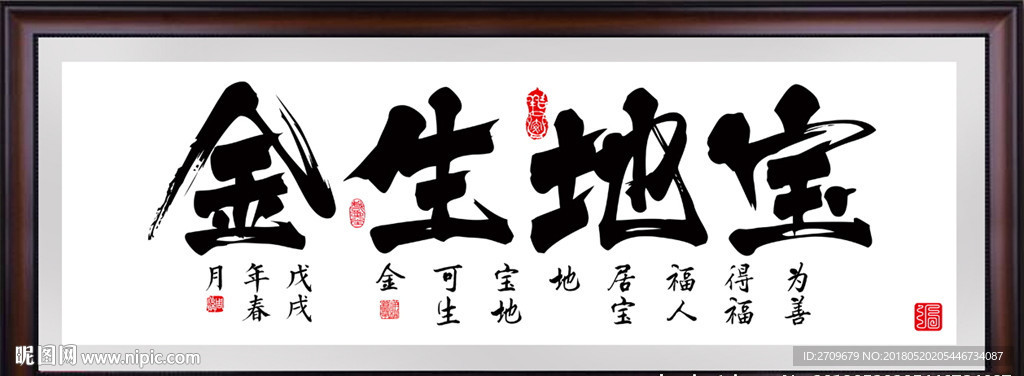 宝地生金
为善
得福
福人
居宝
地
宝地
可生
金
戊戌
年春
月
昵图网 www.nipic.com
ID:2709679 NO:20180520205446734087